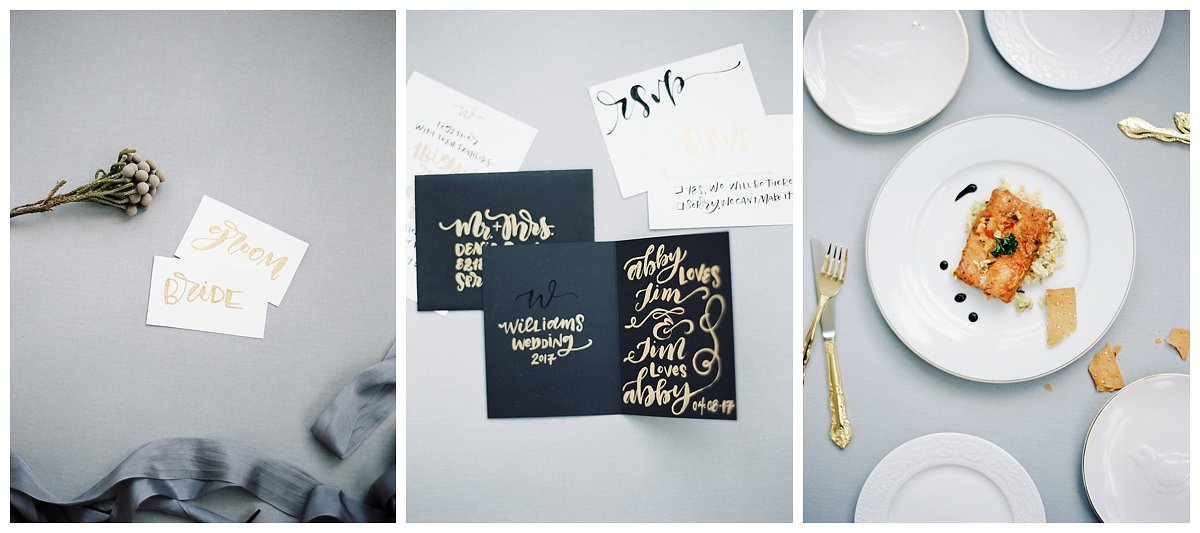 GROOM
BRIDE
W
TOGETHER
WITH THEIR FAMILIES
rsvp
RSVP
YES, WE WILL BE THERE
SORRY, WE CAN'T MAKE IT
Mr. + Mrs.
W
WILLIAMS
WEDDING
2017
abby
LOVES
Jim
&
Jim
LOVES
abby
04·08·17